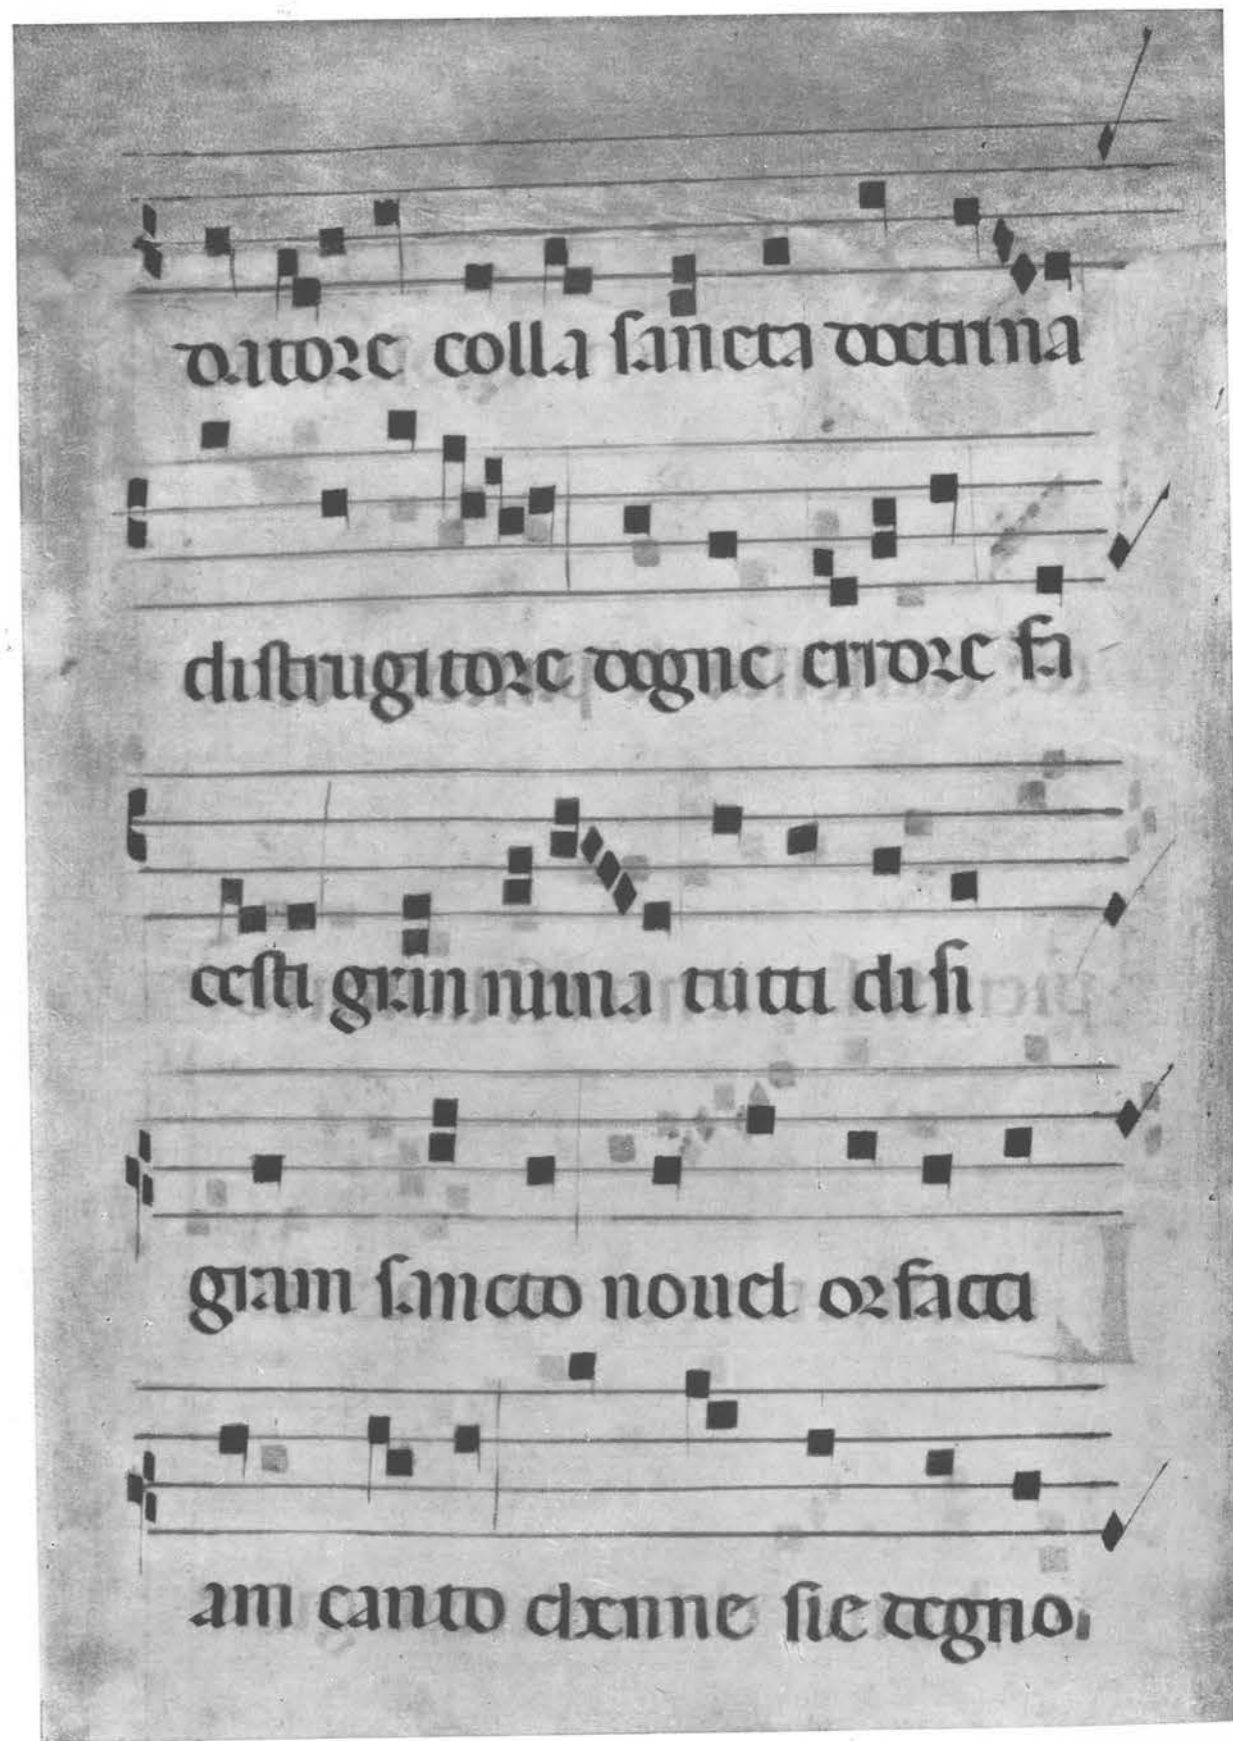 datore colla sancta doctrina
distrugitore dogne errore fa
cesti gran ruina tutti disi
gram sancto nouel or facci
am canto chenne sie degno.